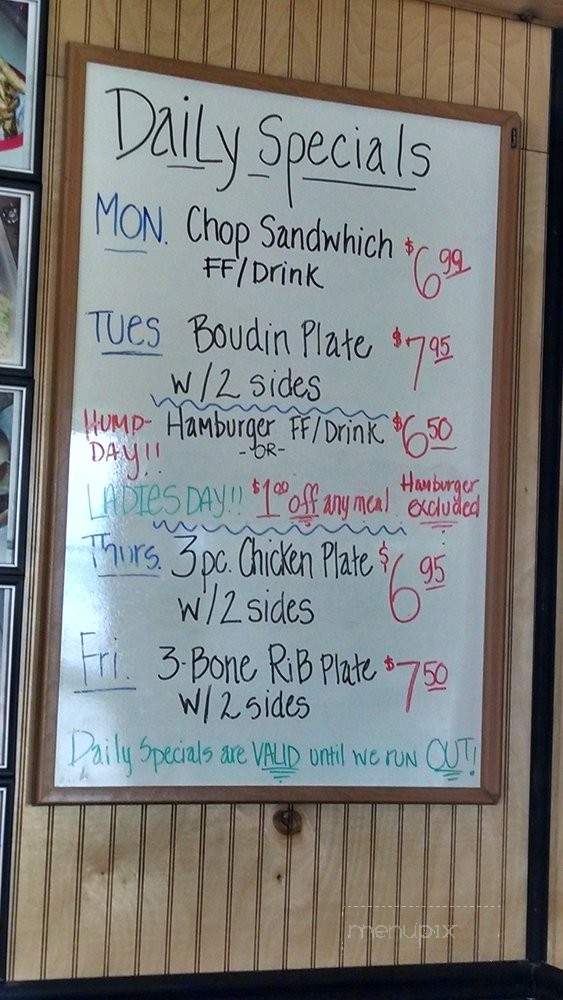 Daily Specials
MON. Chop Sandwhich $6.99
FF/Drink
TUES Boudin Plate $7.95
W/2 sides
HUMP-DAY!! Hamburger FF/Drink $6.50
-OR-
LADIES DAY!! $1.00 off any meal Hamburger excluded
Thurs. 3pc. Chicken Plate $6.95
W/2 sides
Fri. 3-Bone RiB Plate $7.50
W/2 sides
Daily Specials are VALID until we run OUT!
menupix